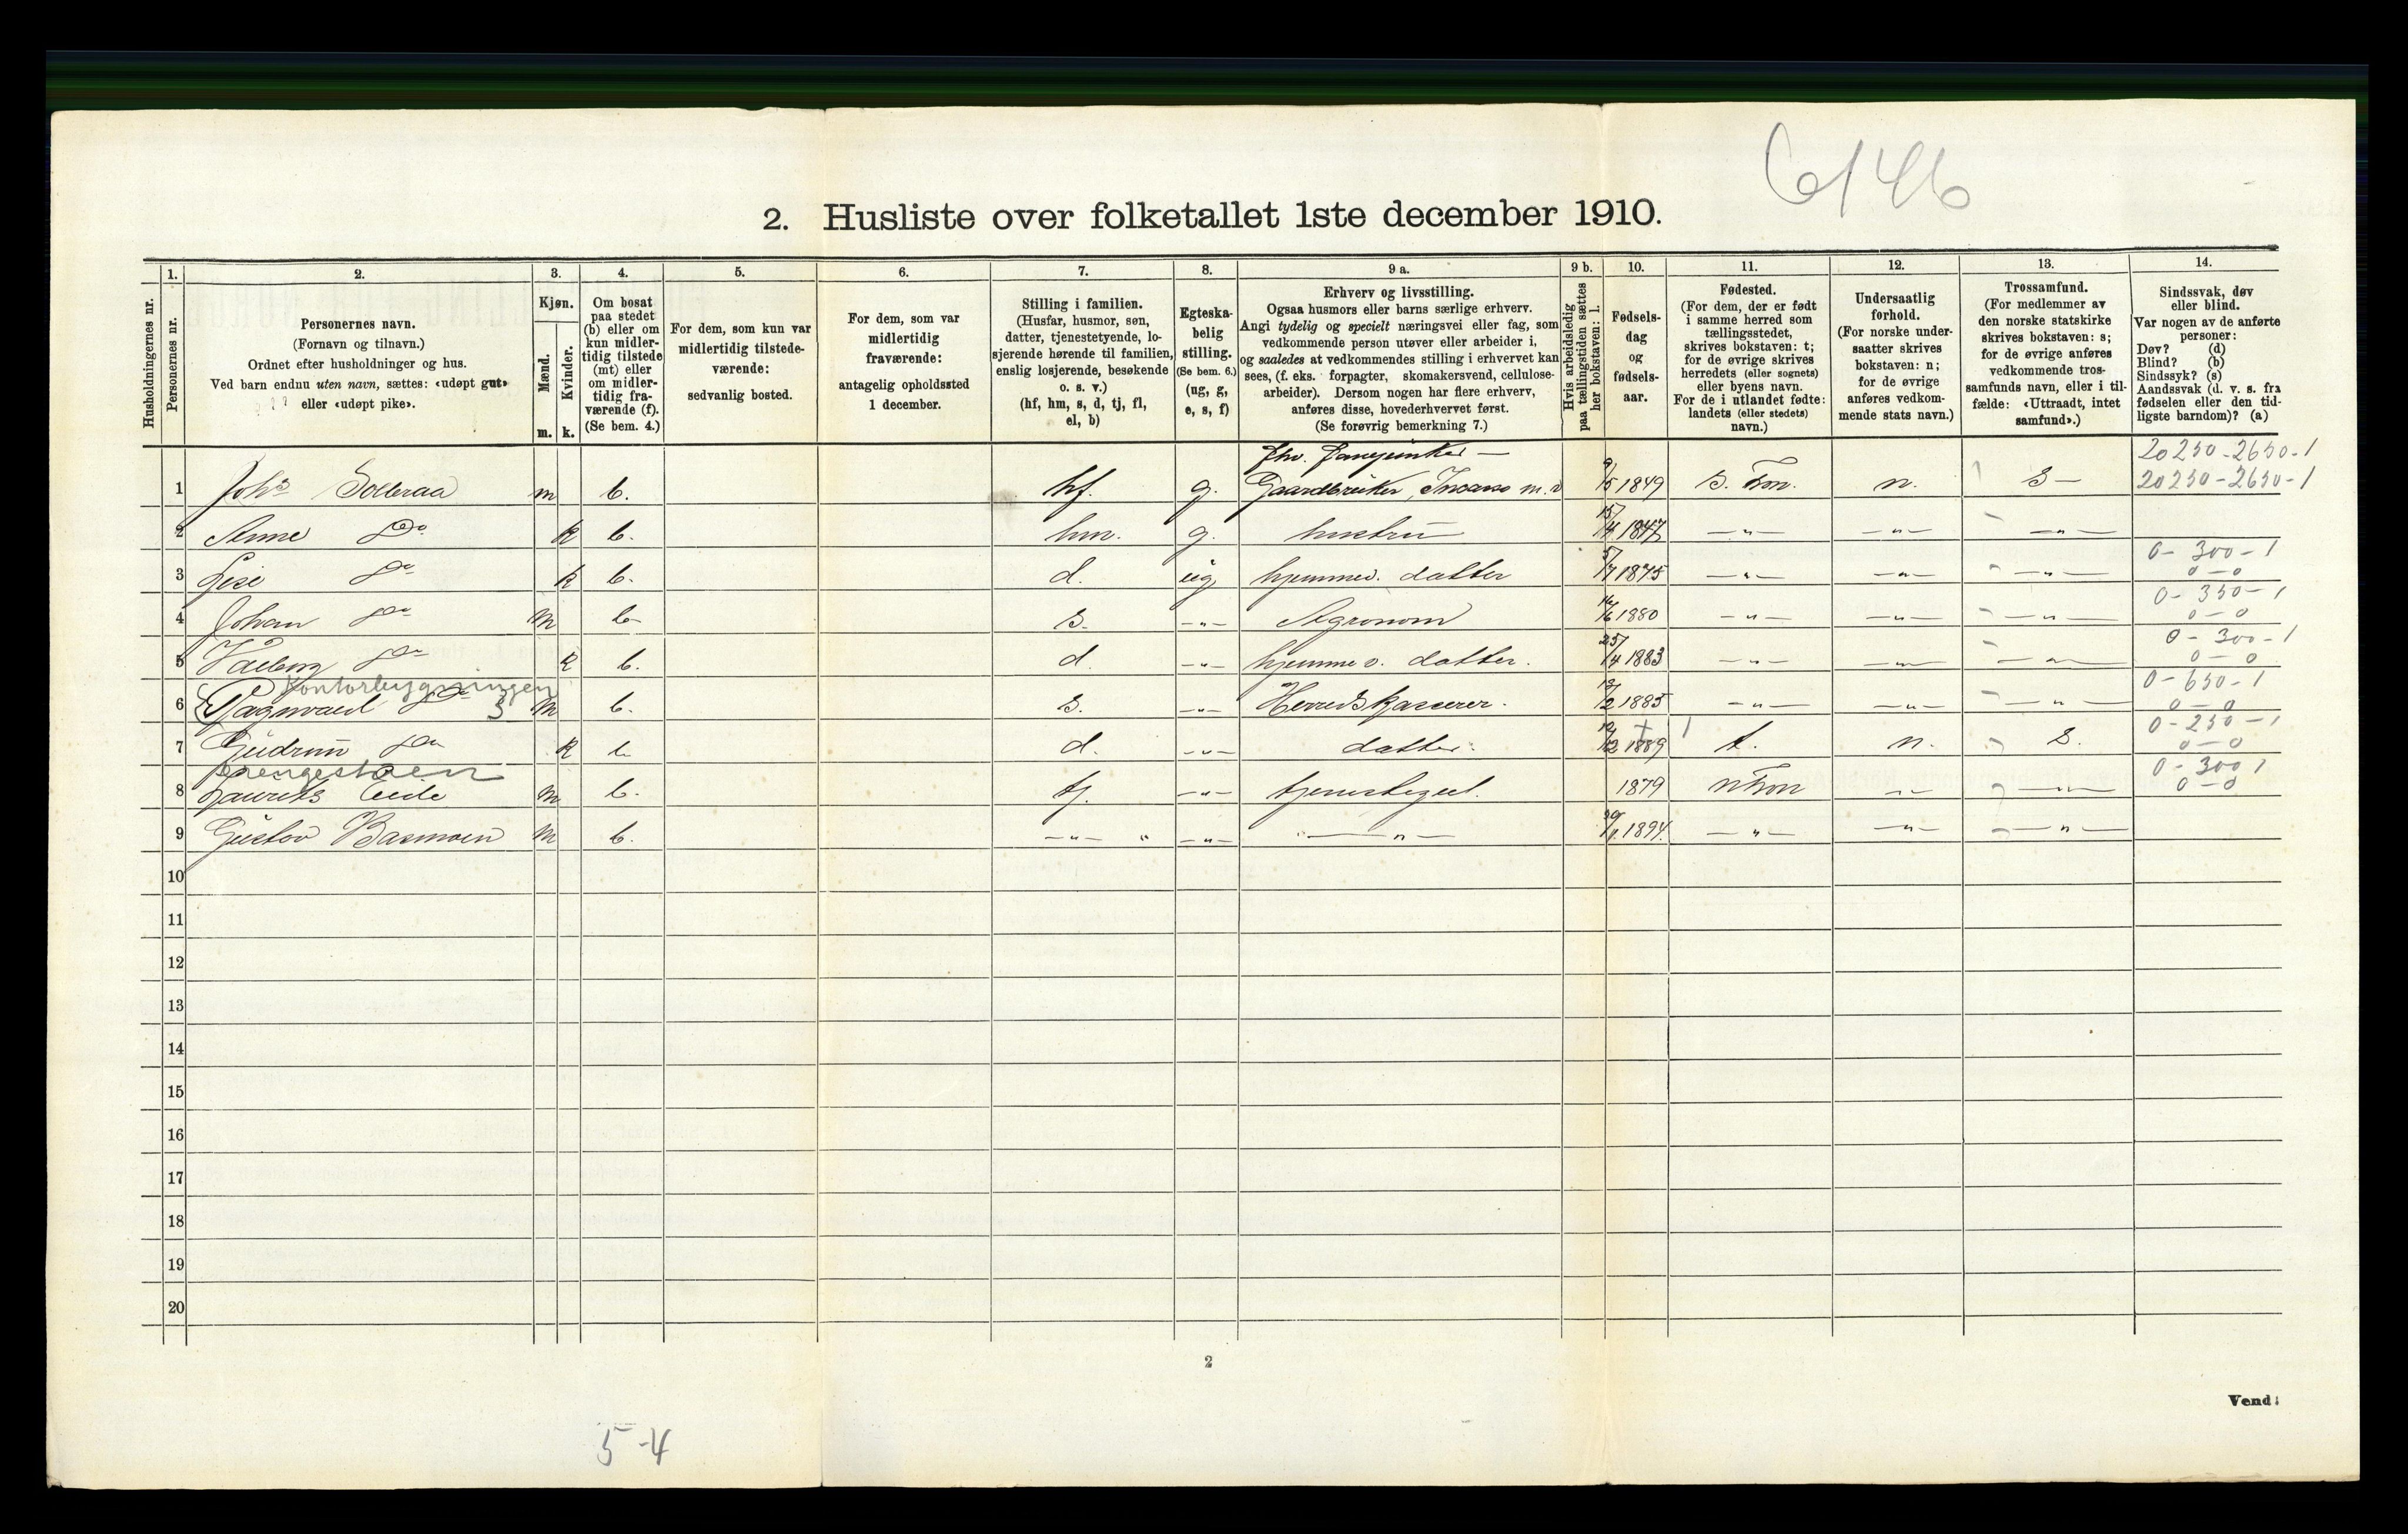 6146
2. Husliste over folketallet 1ste december 1910.
1. 2. 3. 4. 5. 6. 7. 8. 9 a. 9 b. 10. 11. 12. 13. 14.
Husholdningernes nr.
Personernes nr.
Personernes navn.
(Fornavn og tilnavn.)
Ordnet efter husholdninger og hus.
Ved barn endnu uten navn, sættes: «udøpt gut»
eller «udøpt pike».
Kjøn.
Mænd.
Kvinder.
m. k.
Om bosat
paa stedet
(b) eller om
kun midler-
tidig tilstede
(mt) eller
om midler-
tidig fra-
værende (f).
(Se bem. 4.)
For dem, som kun var
midlertidig tilstede-
værende:
sedvanlig bosted.
For dem, som var
midlertidig
fraværende:
antagelig opholdssted
1 december.
Stilling i familien.
(Husfar, husmor, søn,
datter, tjenestetyende, lo-
sjerende hørende til familien,
enslig losjerende, besøkende
o. s. v.)
(hf, hm, s, d, tj, fl,
el, b)
Egteska-
belig
stilling.
(Se bem. 6.)
(ug, g,
e, s, f)
Erhverv og livsstilling.
Ogsaa husmors eller barns særlige erhverv.
Angi tydelig og specielt næringsvei eller fag, som
vedkommende person utøver eller arbeider i,
og saaledes at vedkommendes stilling i erhvervet kan
sees, (f. eks. forpagter, skomakersvend, cellulose-
arbeider). Dersom nogen har flere erhverv,
anføres disse, hovederhvervet først.
(Se forøvrig bemerkning 7.)
Hvis arbeidsledig
paa tællingstiden sættes
her bokstaven: l.
Fødsels-
dag
og
fødsels-
aar.
Fødested.
(For dem, der er født
i samme herred som
tællingsstedet,
skrives bokstaven: t;
for de øvrige skrives
herredets (eller sognets)
eller byens navn.
For de i utlandet fødte:
landets (eller stedets)
navn.)
Undersaatlig
forhold.
(For norske under-
saatter skrives
bokstaven: n;
for de øvrige
anføres vedkom-
mende stats navn.)
Trossamfund.
(For medlemmer av
den norske statskirke
skrives bokstaven: s;
for de øvrige anføres
vedkommende tros-
samfunds navn, eller i til-
fælde: «Uttraadt, intet
samfund».)
Sindssvak, døv
eller blind.
Var nogen av de anførte
personer:
Døv? (d)
Blind? (b)
Sindssyk? (s)
Aandssvak (d. v. s. fra
fødselen eller den tid-
ligste barndom)? (a)
20250-2650-1
1 Johs Solberaa m b. hf. g. Gaardbruker, m. 9/5 1849 n. S - 20250-2650-1
2 Anne Do k b. hm. g. hustru 15/4 1847 -"- -"- -"-
0-300-1
3 Lise Do k b. d. ug hjemmev. datter 5/7 1875 -"- -"- -"- 0-0
0-350-1
4 Johan Do m b- s. -"- Agronom 1880 -"- -"- -"- 0-0
0-300-1
5 Valborg Do k b. d. -"- hjemme v. datter. 25/4 1883 -"- -"- -"- 0-0
Kontorbygningen 0-650-1
6 Ragnvald Do 3 m b. s. -"- Herredskasserer. 1885 -"- -"- -"- 0-0
0-250-1
7 Gudrun Do k b d. -"- datter. 12/12 1889 t. n. S. 0-0
0-300 1
8 Laurits Eide m b. tj. -"- 1879 -"- -"- 0-0
9 Gustav Basmoen m b. -"- " -"- -"- 1894 -"- -"- -"-
10
11
12
13
14
15
16
17
18
19
20
2
Vend!
5-4